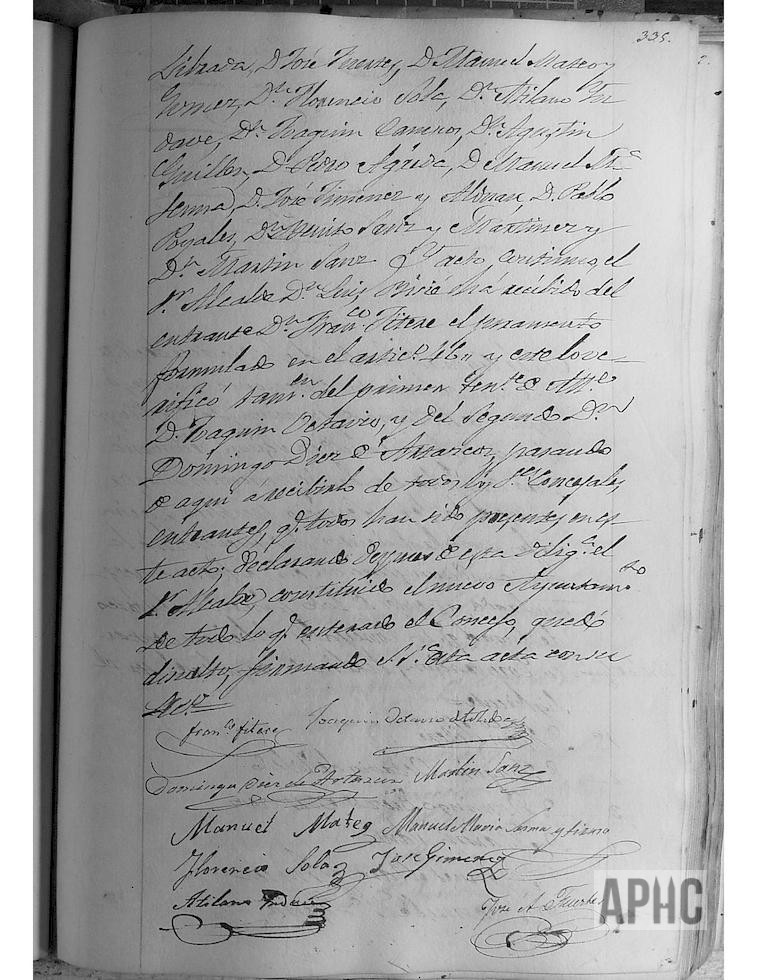 335.
Librada, D. José Fuertes, D. Manuel Mateo y
Gomez, Dn. Florencio Sola, Dn. Atilano An
dave, Dn. Joaquin Carrero, Dn. Agustin
Guillen, Dn. Pedro Agreda, D. Manuel Ma.
Serma, D. José Gimenez y D. Pablo
Dn. Benito Sanz y Martinez y
Dn. Martin Sanz. Yt acto continuo, el
Sr. Alcalde Dn. Luis há recibido del
entrante Dn. Franco. Fitere el juramento
formulado en el artico. 46,, y este lo ve-
rificó tamen. del primer Tente. de Alle.
D. Joaquin Octavio, y del Segundo Dn.
Domingo Diez de Antarcon, pasando
de aqui á recibirlo de todos los Sres. Concejales
entrantes, q. todos han sido presentes en es
te acto; declarando despues de esta Diliga. el
Sr. Alcalde, constituido el nuevo Ayuntamto.
De todo lo q. enterado el Concejo, quedó
disuelto, firmando S.S. esta acta con su
Franco. Fitere Joaquin Octavio de Toledo
Domingo Diez de Martin Sanz
Manuel Mateo Manuel Maria Serma y
Florencio Sola José Gimenez
Atilano José A. Fuertes
APHC